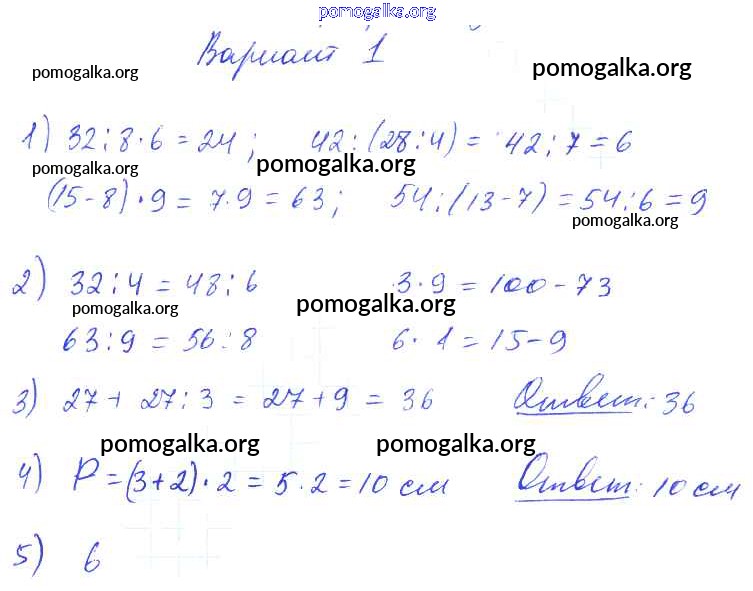 pomogalka.org
Вариант 1
pomogalka.org pomogalka.org
1) 32:8·6=24; 42:(28:4)= 42:7=6
pomogalka.org pomogalka.org
(15-8)·9= 7·9=63; 54:(13-7)=54:6=9
pomogalka.org
2) 32:4=48:6 3·9=100-73
pomogalka.org pomogalka.org
63:9=56:8 6·1=15-9
3) 27+27:3=27+9=36 Ответ: 36
pomogalka.org pomogalka.org
4) P=(3+2)·2=5·2=10 см Ответ: 10 см
5) 6